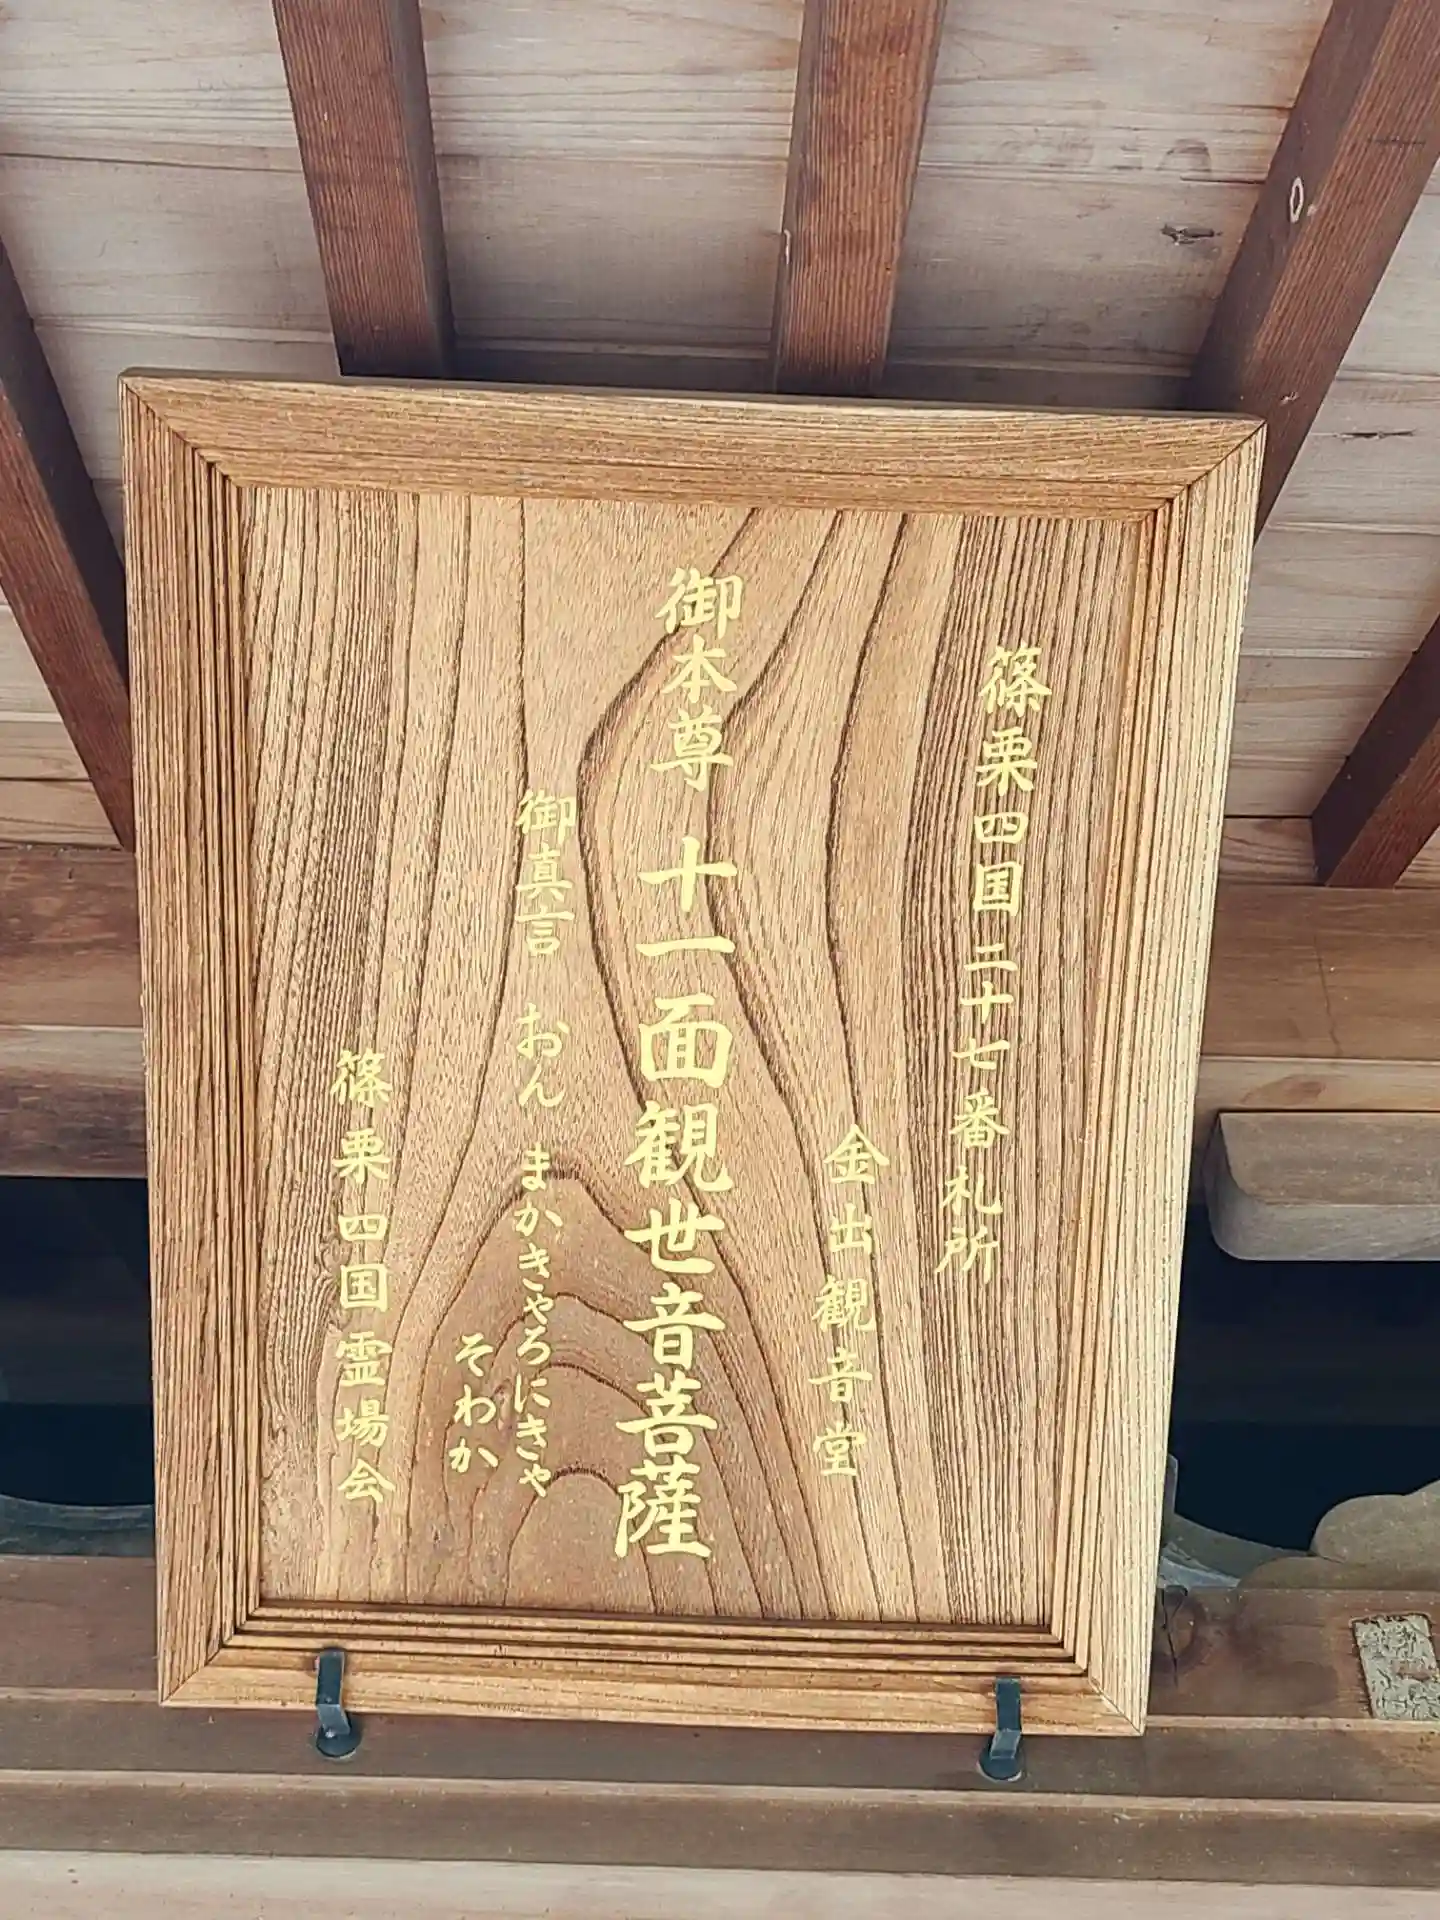 篠栗四国二十七番札所
金出観音堂
御本尊 十一面観世音菩薩
御真言 おん まかきゃろにきゃ
そわか
篠栗四国霊場会